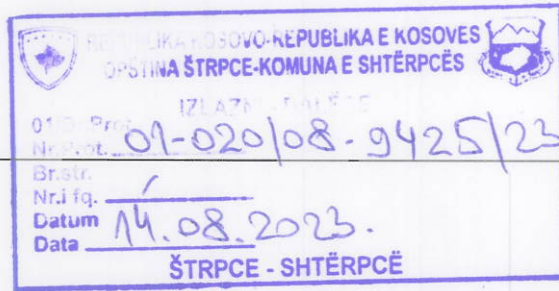 REPUBLIKA KOSOVO-REPUBLIKA E KOSOVËS
OPŠTINA ŠTRPCE-KOMUNA E SHTËRPCËS
IZLAZNI - DALËSE
Nr.Prot. 01-020/08-9425/23
Br.str.
Nr.i fq. /
Datum 14.08.2023.
Data
ŠTRPCE - SHTËRPCË